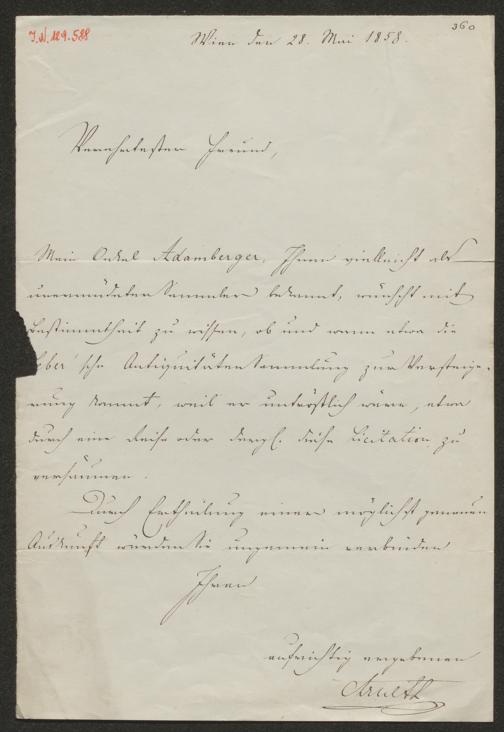 I.N. 129.588
360
Wien den 28. Mai 1858.
Verehrtester Freund,
Mein Onkel Adamberger, Ihnen vielleicht als
unermüdeter Sammler bekannt, wünscht mit
Bestimmtheit zu wissen, ob und wann etwa die
'sche Antiquitäten Sammlung zur Versteige-
rung kommt, weil er untröstlich wäre, etwa
durch eine Reise oder dergl. diese Licitation zu
versäumen.
Durch Ertheilung einer möglichst genauen
Auskunft würden Sie ungemein verbinden
Ihren
aufrichtig ergebenen
Arneth